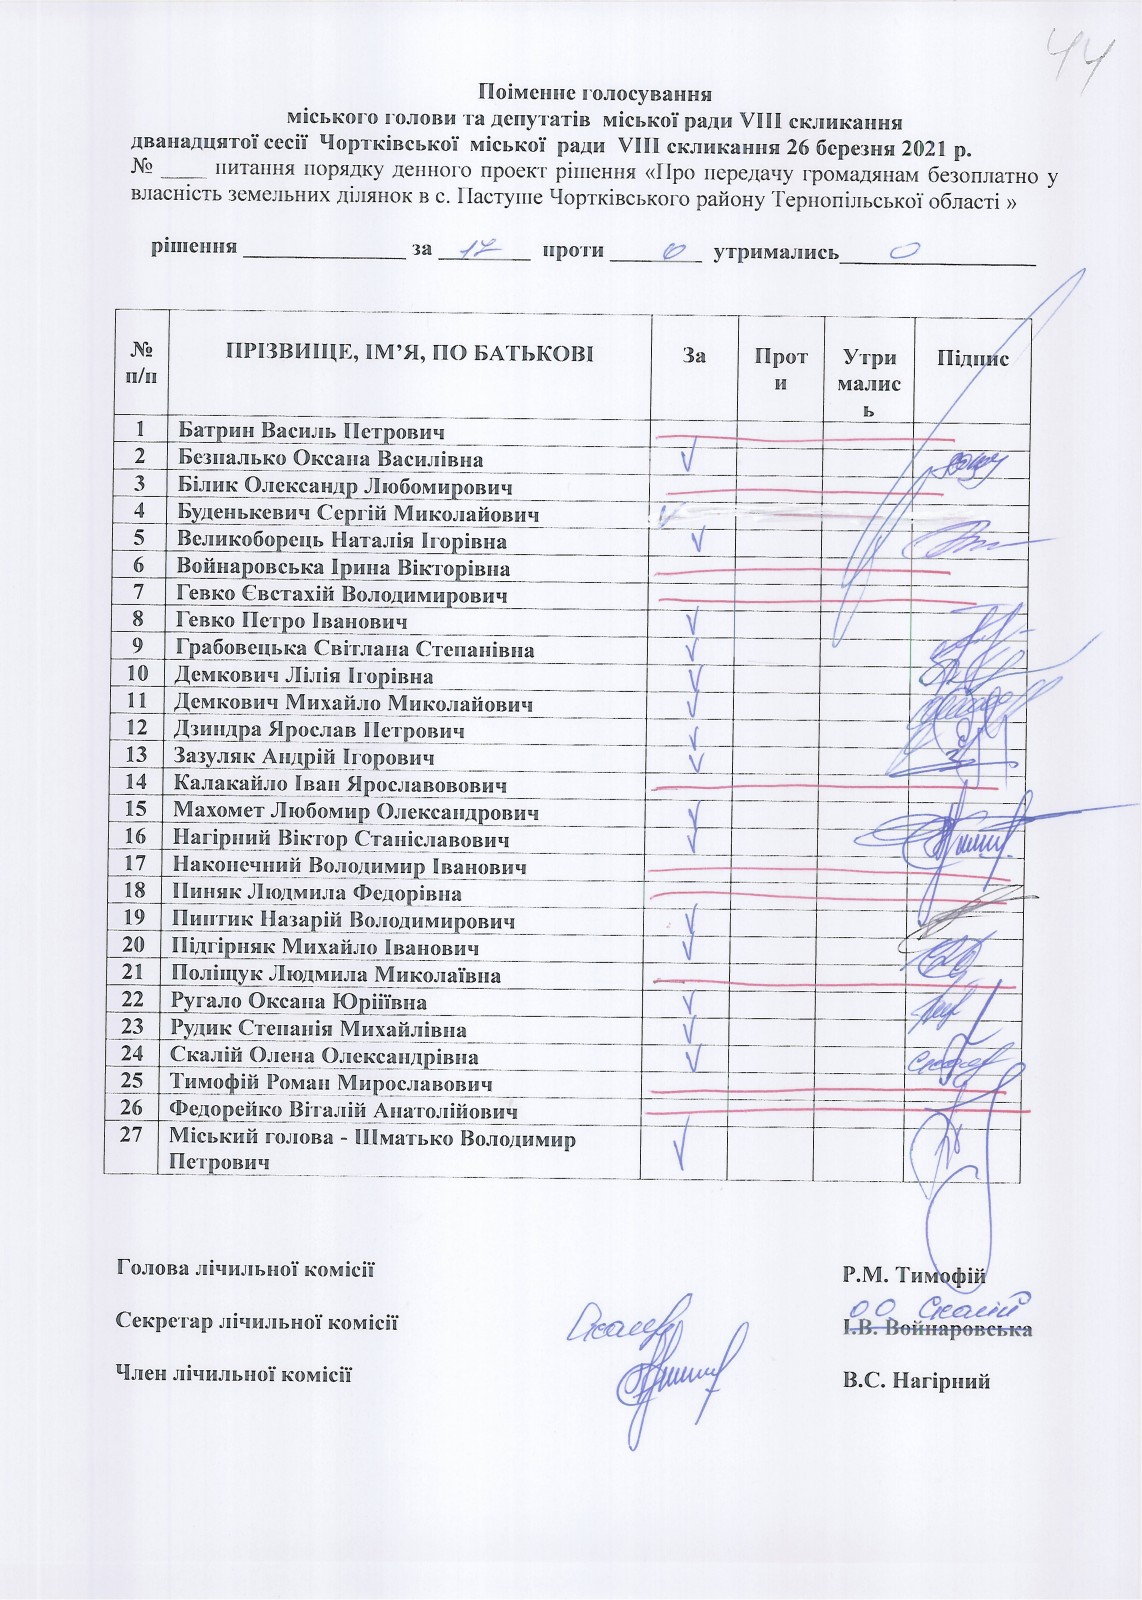 44
Поіменне голосування
міського голови та депутатів міської ради VIII скликання
дванадцятої сесії Чортківської міської ради VIII скликання 26 березня 2021 р.
№ ____ питання порядку денного проект рішення «Про передачу громадянам безоплатно у
власність земельних ділянок в с. Пастуше Чортківського району Тернопільської області »
рішення ______________ за 17 проти 0 утримались 0
№ п/п ПРІЗВИЩЕ, ІМ’Я, ПО БАТЬКОВІ За Проти Утримались Підпис
1 Батрин Василь Петрович
2 Безпалько Оксана Василівна
3 Білик Олександр Любомирович
4 Буденькевич Сергій Миколайович
5 Великоборець Наталія Ігорівна
6 Войнаровська Ірина Вікторівна
7 Гевко Євстахій Володимирович
8 Гевко Петро Іванович
9 Грабовецька Світлана Степанівна
10 Демкович Лілія Ігорівна
11 Демкович Михайло Миколайович
12 Дзиндра Ярослав Петрович
13 Зазуляк Андрій Ігорович
14 Калакайло Іван Ярославовович
15 Махомет Любомир Олександрович
16 Нагірний Віктор Станіславович
17 Наконечний Володимир Іванович
18 Пиняк Людмила Федорівна
19 Пиптик Назарій Володимирович
20 Підгірняк Михайло Іванович
21 Поліщук Людмила Миколаївна
22 Ругало Оксана Юріїївна
23 Рудик Степанія Михайлівна
24 Скалій Олена Олександрівна
25 Тимофій Роман Мирославович
26 Федорейко Віталій Анатолійович
27 Міський голова - Шматько Володимир
Петрович
Голова лічильної комісії Р.М. Тимофій
О.О. Скалій
Секретар лічильної комісії І.В. Войнаровська
Член лічильної комісії В.С. Нагірний